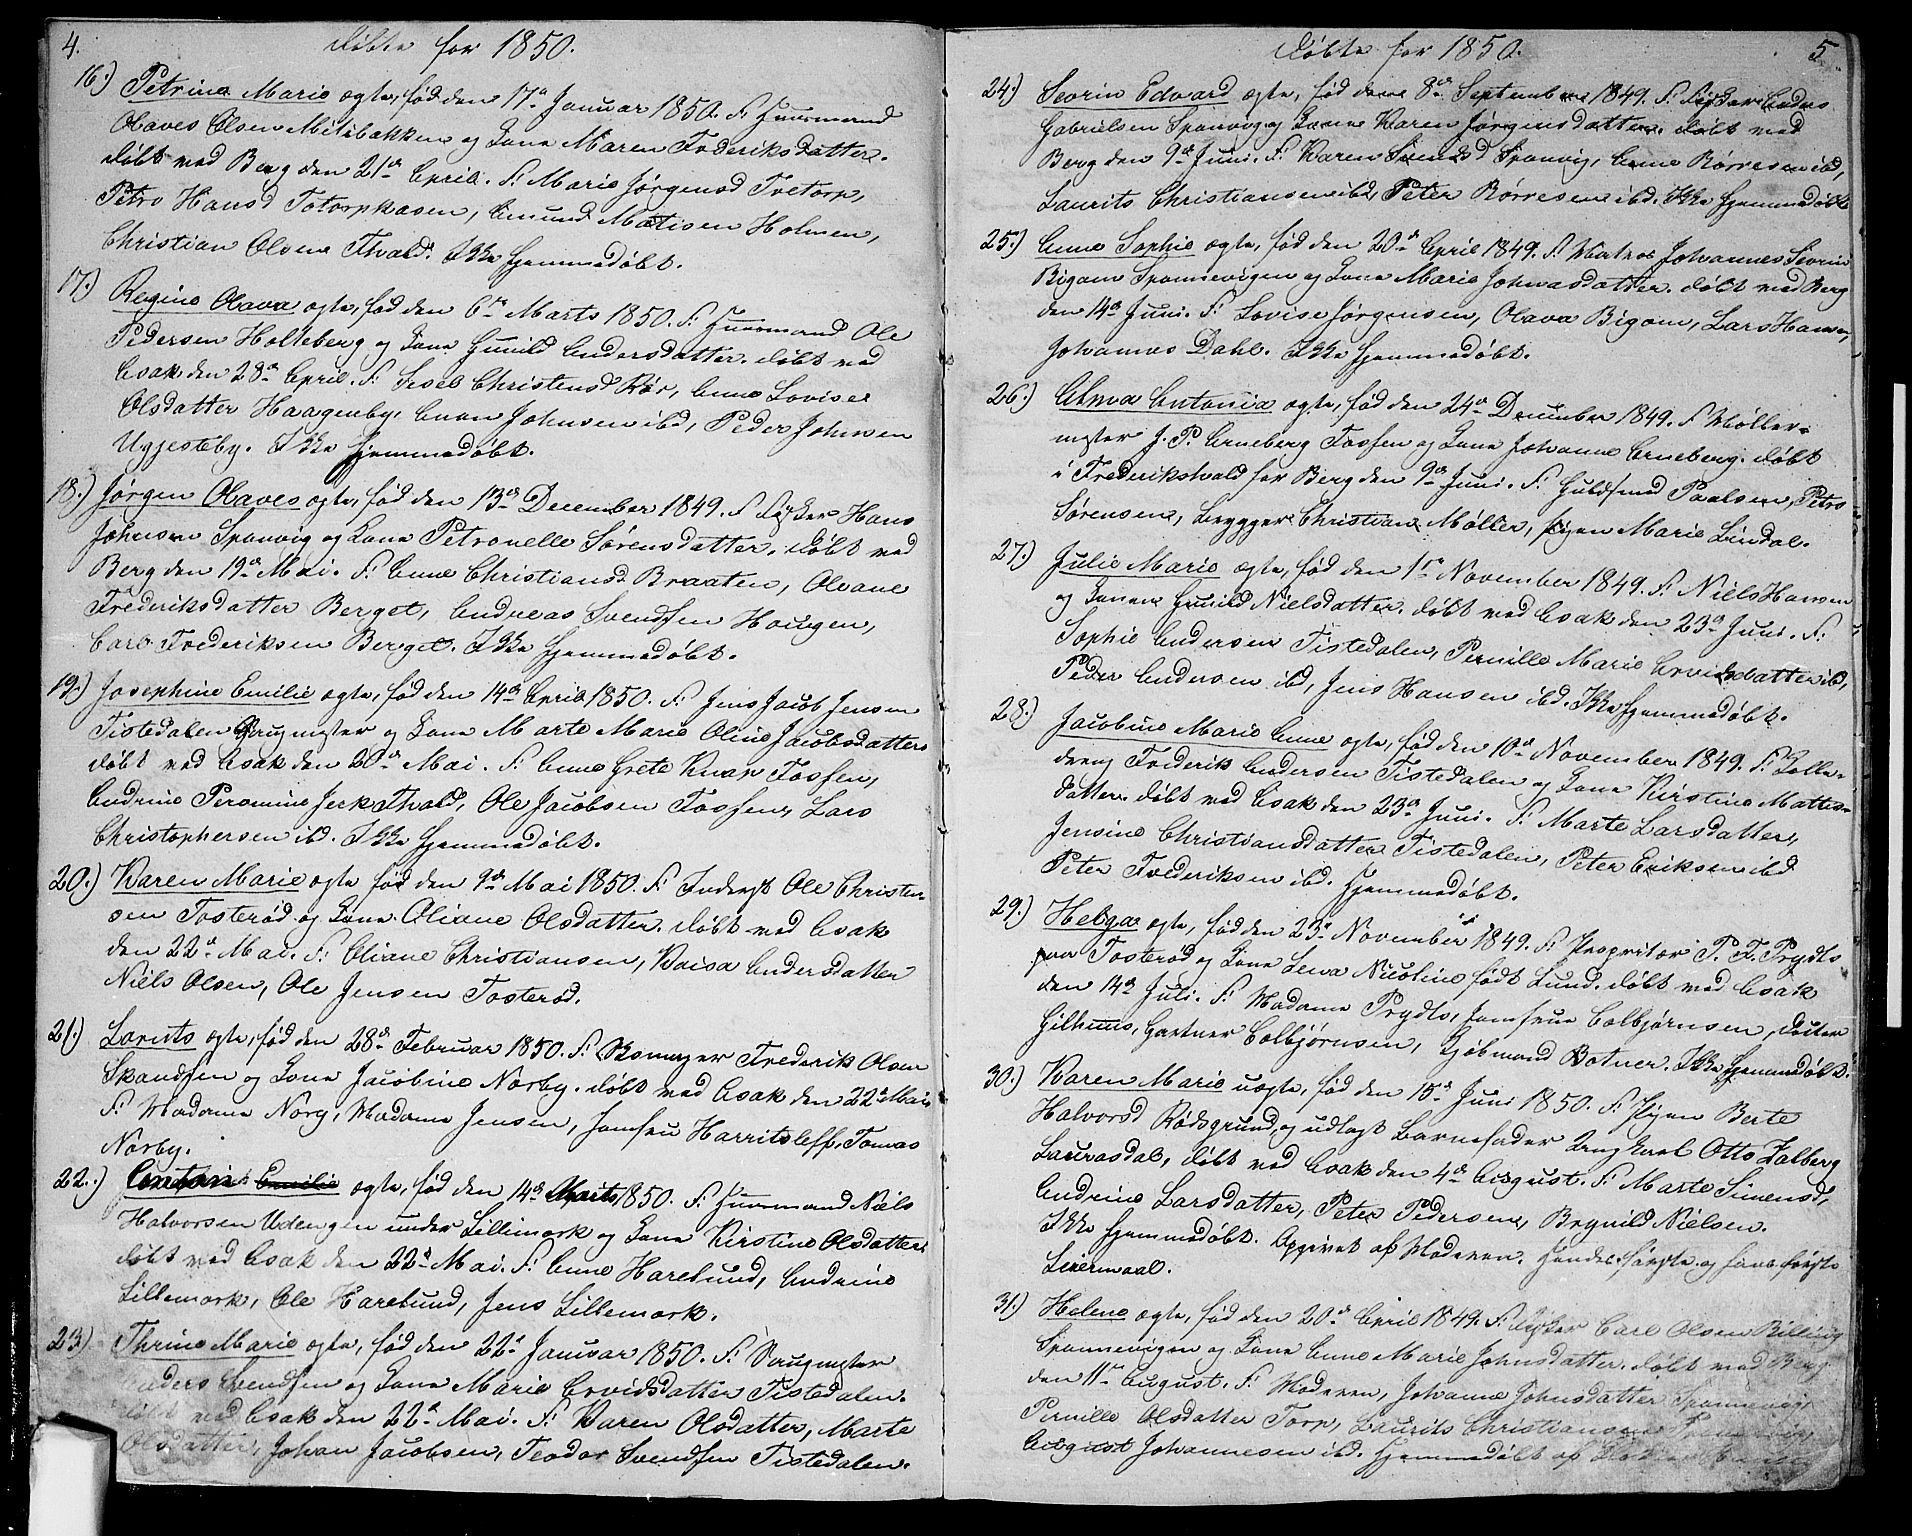 4.
Döbte for 1850.
16.) Petrine Marie ægte, fød den 17de Januar 1850. F: Huusmand
Olaves Olsen Mitsbakken og Kone Maren Frederiksdatter.
döbt ved Berg den 21de April. F: Marie Jörgensd Tretorp,
Petro Hansd Totorpkasen, Amund Matisen Holmen,
Christian Olsen Fhald. Ikke hjemmedöbt.
17.) Regine Olava ægte, fød den 6te Marts 1850. F: Huusmand Ole
Pedersen Holleberg og Kone Gunild Andersdatter. döbt ved
Asak den 28de April. F: Sisel Christensd Rör, Anne Lovise
Olsdatter Haagenby, Anon Johnsen ibd, Peder Johnsen
Ugjesteby. Ikke hjemmedöbt.
18.) Jörgen Olaves ægte, fød den 13de December 1849. F: Fisker Hans
Johnsen Sponvig og Kone Petronelle Sörensdatter. döbt ved
Berg den 19de Mai. F: Anne Christiansd. Braaten, Oleane
Frederiksdatter Berget, Andreas Svendsen Hougen,
Carl Frederiksen Berget. Ikke hjemmedöbt.
19.) Josephine Emilie ægte, fød den 14de April 1850. F: Jens Jacob Jensen
Tistedalen Brugmester og Kone Marte Marie Oline Jacobsdatter
döbt ved Asak den 20de Mai. F: Anne Grete Knap Fossen,
Andrine Peromine Jerk Fhald, Ole Jacobsen Fossen, Lars
Christophersen ibd. Ikke hjemmedöbt.
20.) Karen Marie ægte fød den 9de Mai 1850. F: Inderst Ole Christen-
sen Tosteröd og Kone Oliane Olsdatter. döbt ved Asak
den 22de Mai. F: Oliane Christiansen, Kaisa Andersdatter
Niels Olsen, Ole Jensen Tosteröd.
21.) Lorents ægte, fød den 28de Februar 1850. F: Skomager Frederik Olsen
Skandsen og Kone Jacobine Norby. döbt ved Asak den 22de Mai
F: Madame Nory, Madame Jensen, Jomfru Harritsleff, Tomas
Norby.
22.) Anton Emilie ægte, fød den 14de Marts 1850. F: Huusmand Niels
Halvorsen Udengen under Lillemork og Kone Kirstine Olsdatter
döbt ved Asak den 22de Mai. F: Anne Harelund, Andrine
Lillemork, Ole Harelund, Jens Lillemork.
23.) Thrine Marie ægte, fød den 22de Januar 1850. F: Saugmester
Anders Svendsen og Kone Marie Arvidsdatter Tistedalen.
döbt ved Asak den 22de Mai. F: Karen Olsdatter, Marte
Olsdatter, Johan Jacobsen, Teodor Svendsen Tistedalen.
Döbte for 1850.
5.
24.) Sevrin Edvard ægte, fød den 8de September 1849. F: Fisker Anders
Gabrielsen Sponvig og Kone Karen Jörgensdatter. döbt ved
Berg den 9de Juni. F: Karen Svensd Sponvig, Anne Börresen ibd,
Laurits Christiansen ibd, Peter Börresen ibd. Ikke hjemmedöbt
25.) Anne Sophie ægte, fød den 20de April 1849. F: Matros Johannes Sevrin
Bigom Sponnevigen og Kone Marie Johnasdatter. döbt ved Berg
den 14de Juni. F: Lovise Jörgensen, Olava Bigom, Lars Hansen,
Johannes Dahl. Ikke hjemmedöbt.
26.) Alma Antonia ægte, fød den 24de December 1849. F: Möller-
mester J. P. Arneberg Fossen og Kone Johanne Arneberg. döbt
i Frederikshald for Berg den 9de Juni. F: Guldsmed Paalsen, Petro
Sörensen, Brygger Christian Möller, Pigen Marie Lindal.
27.) Julie Marie ægte, fød den 1te November 1849. F: Niels Hansen
og Konen Gunild Nielsdatter. döbt ved Asak den 23de Juni. F:
Sophie Andersen Tistedalen, Pernille Marie Arvidsdatter ibd,
Peder Andersen ibd, Jens Hansen ibd. Ikke hjemmedöbt.
28.) Jacobine Marie Anne ægte, fød den 10de November 1849. F: Rolle-
dreng Frederik Andersen Tistedalen og Kone Kirstine Mattis-
datter. döbt ved Asak den 23de Juni. F: Marte Larsdatter,
Jensine Christiansdatter Tistedalen, Peter Eriksen ibd
Peter Frederiksen ibd. Hjemmedöbt.
29.) Helga ægte, fød den 23de November 1849. F: Propritær P. F. Prydts
paa Tosteröd og Kone Lewa Nicoline født Lund. döbt ved Asak
den 14de Juli. F: Madame Prydts, Jomfrue Colbjörnsen, Doctor
Gilhuus, Gartner Colbjörnsen, Kjöbmand Botner. Ikke hjemmedöbt.
30.) Karen Marie uægte, fød den 15de Juni 1850. F: Pigen Berte
Halvorsd Rödsgrund, og udlagt Barnefader Ungkarl Otto Kalberg
Laurasdal, döbt ved Asak den 4de August. F: Marte Simensd,
Andrine Larsdatter, Peter Pedersen, Brynild Nielsen.
Ikke hjemmedöbt. Opgivet af Moderen. Hendes förste og hans förste
Leiermaal.
31.) Helene ægte, fød den 20de April 1849. F: Fisker Carl Olsen Billing
Sponnevigen og Kone Anne Marie Johnsdatter. döbt ved Berg
den 11te August. F: Moderen, Johanne Johnsdatter Sponnevig,
Pernille Olsdatter Torp, Laurits Christiansen Sponnevig,
August Johannesen ibd. Hjemmedöbt af